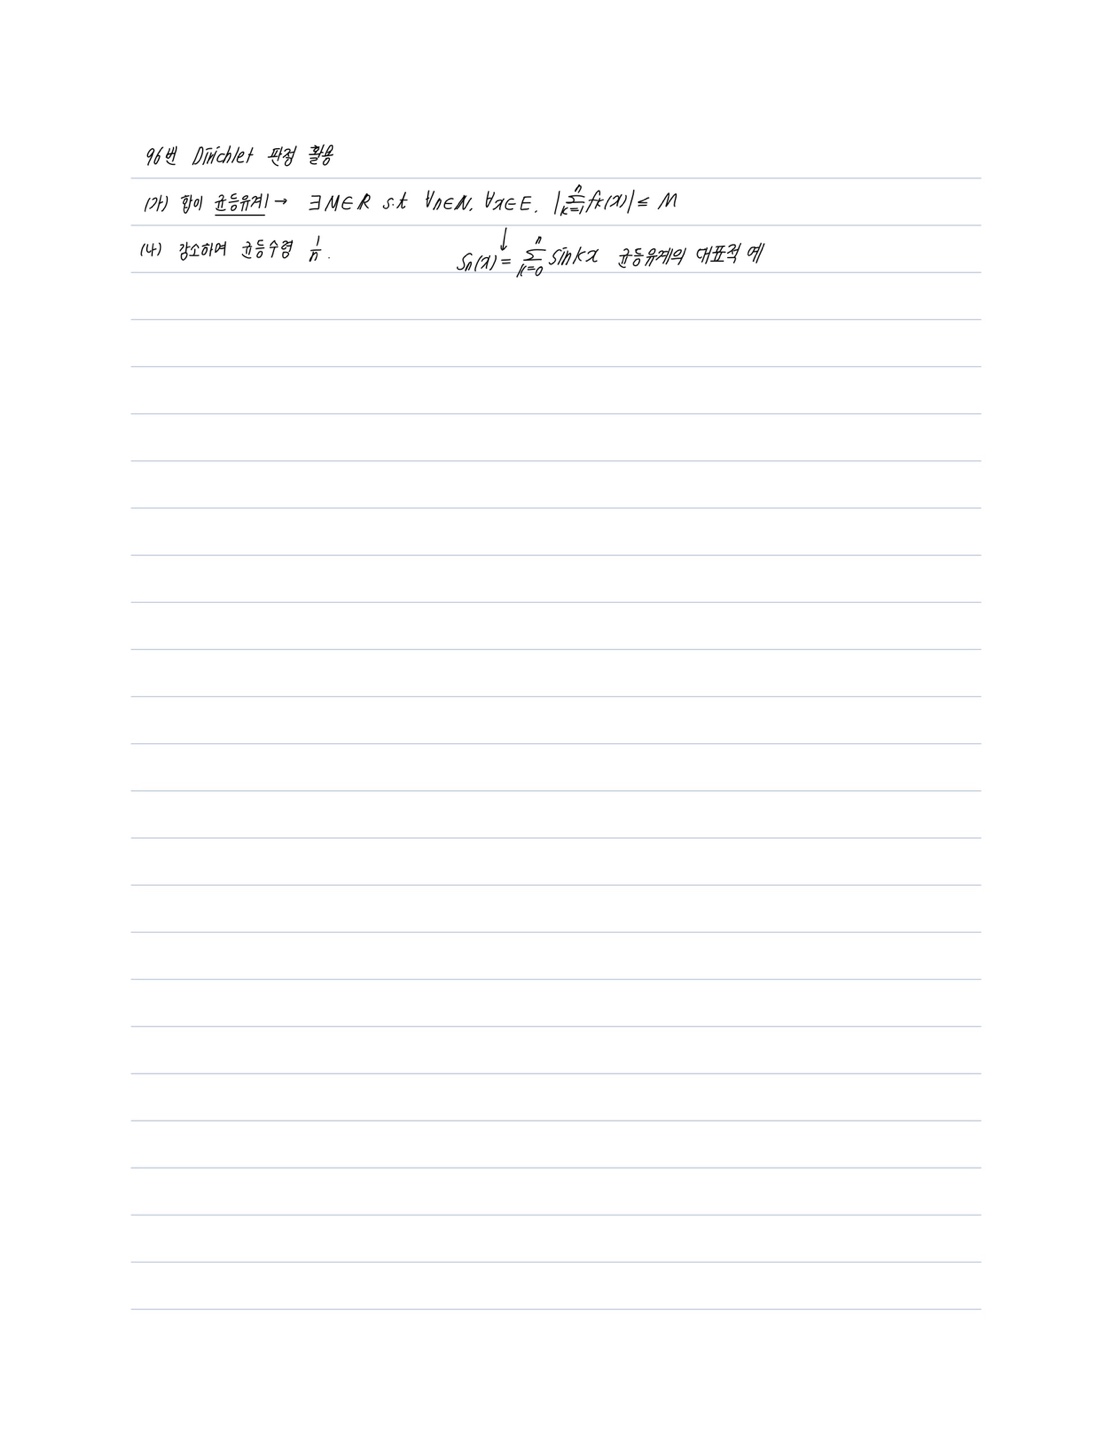 96번 Dirichlet 판정 활용
(가) 합이 균등유계 → ∃M∈R s.t ∀n∈N, ∀x∈E, |∑_{k=1}^{n} f_k(x)| ≤ M
(나) 감소하며 균등수렴 1/n.
↓ S_n(x) = ∑_{k=0}^{n} sin kx 균등유계의 대표적 예